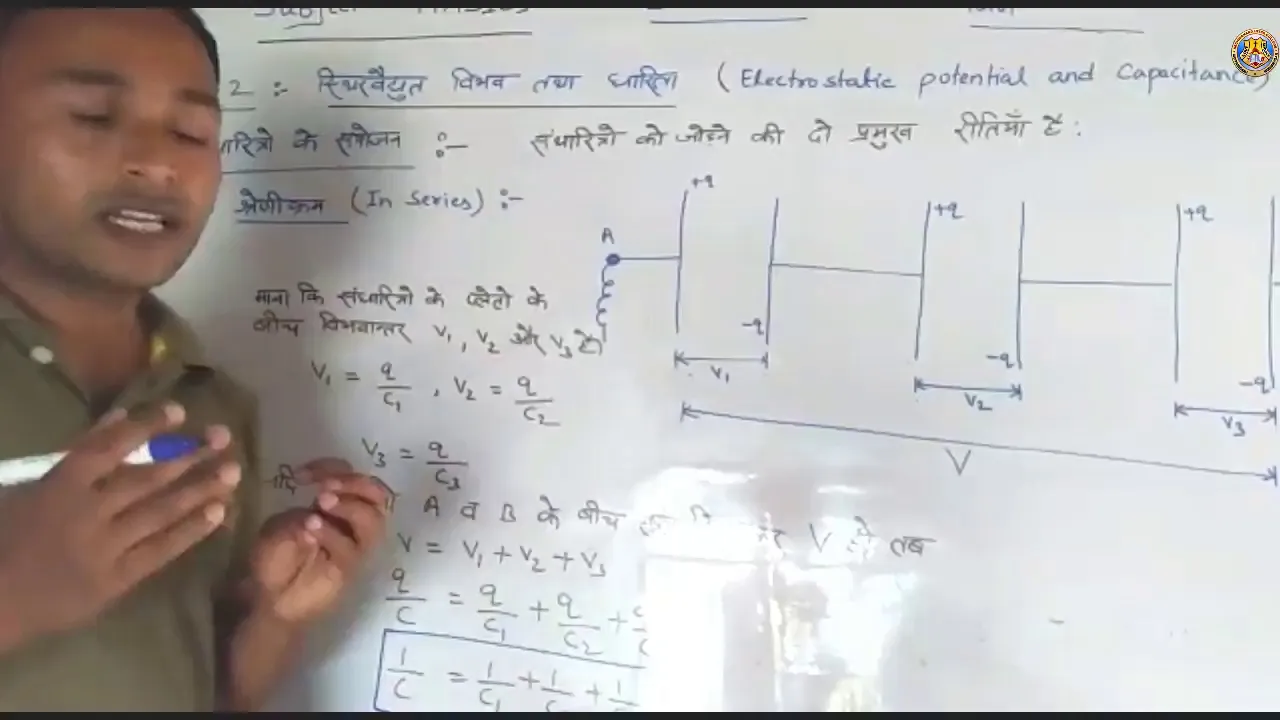 2 :- स्थिरवैद्युत विभव तथा धारिता (Electrostatic potential and Capacitance)
के संयोजन :- संधारित्रो को जोड़ने की दो प्रमुख रीतियाँ हैं :
श्रेणीक्रम (In Series) :-
+q
+q
+q
A
-q
-q
-q
V1
V2
V3
V
माना कि संधारित्रो के प्लेटो के
बीच विभवान्तर V1, V2 और V3 है।
V1 = q/C1 , V2 = q/C2
V3 = q/C3
A व B के बीच V तब
V = V1 + V2 + V3
q/C = q/C1 + q/C2 +
1/C = 1/C1 + 1/C +